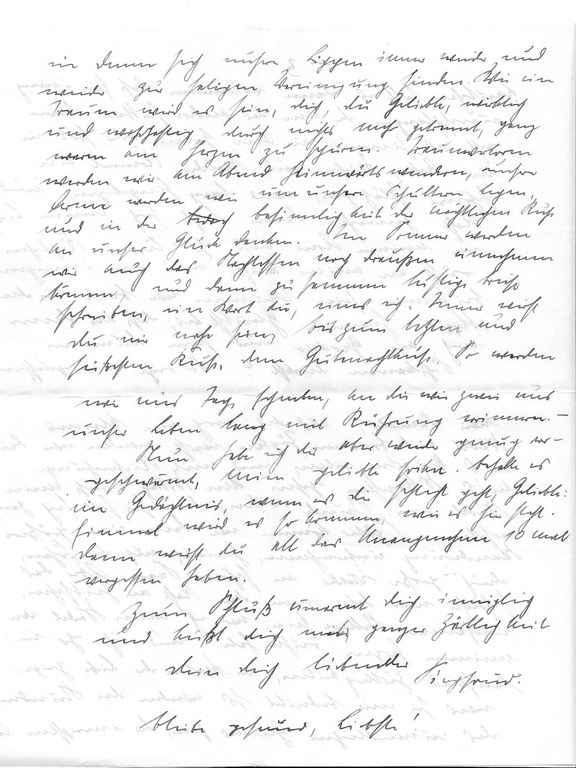 in denen sich unsere Lippen immer wieder und
wieder zur seligen Vereinigung finden. Wie ein
Traum wird es sein, dich, du Geliebte, wirklich
und wahrhaftig durch nichts mehr getrennt, ganz
warm am Herzen zu spüren. Traumverloren
werden wir am Abend heimwärts wandern, unsere
Arme werden wir um unsere Schultern legen,
und in der Besinnlichkeit der nächtlichen Ruhe
an unser Glück denken. Im Sommer werden
wir auch das Nachtessen noch draußen einnehmen
können, und dann zusammen lustige Briefe
schreiben, ein Wort du, eines ich. Immer wirst
du mir nahe sein, bis zum letzten und
süßesten Kuß, dem Gutenachtkuß. So werden
wir uns Tage schaffen, an die wir zwei uns
unser Leben lang mit Rührung erinnern. –
Nun habe ich dir aber wieder genug vor-
geschwärmt, mein geliebte. Behalte es
im Gedächtnis, wenn es dir schlecht geht, Geliebte:
Einmal wird es so kommen, wie es hier steht.
Dann wirst du all das Unangenehme 10 mal
vergessen haben.
Zum Schluß umarmt dich inniglich
und küßt dich mit ganzer Zärtlichkeit
dein dich liebender
bleibe gesund, Liebste!